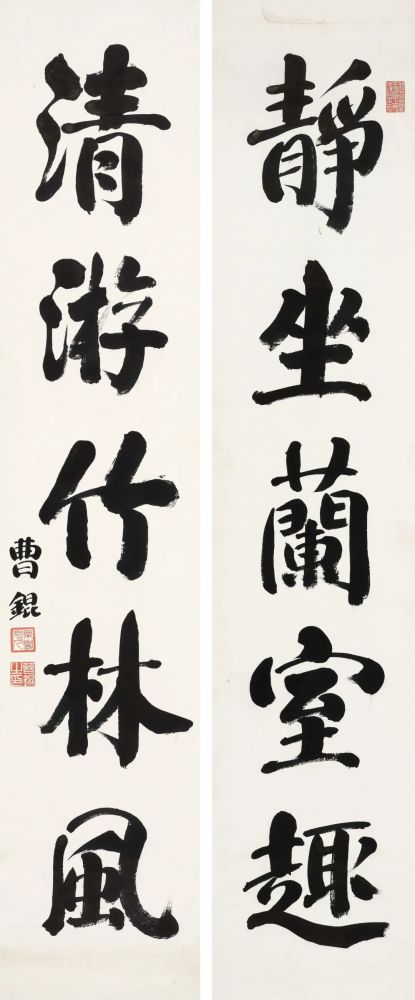 靜坐蘭室趣
清游竹林風
曹錕